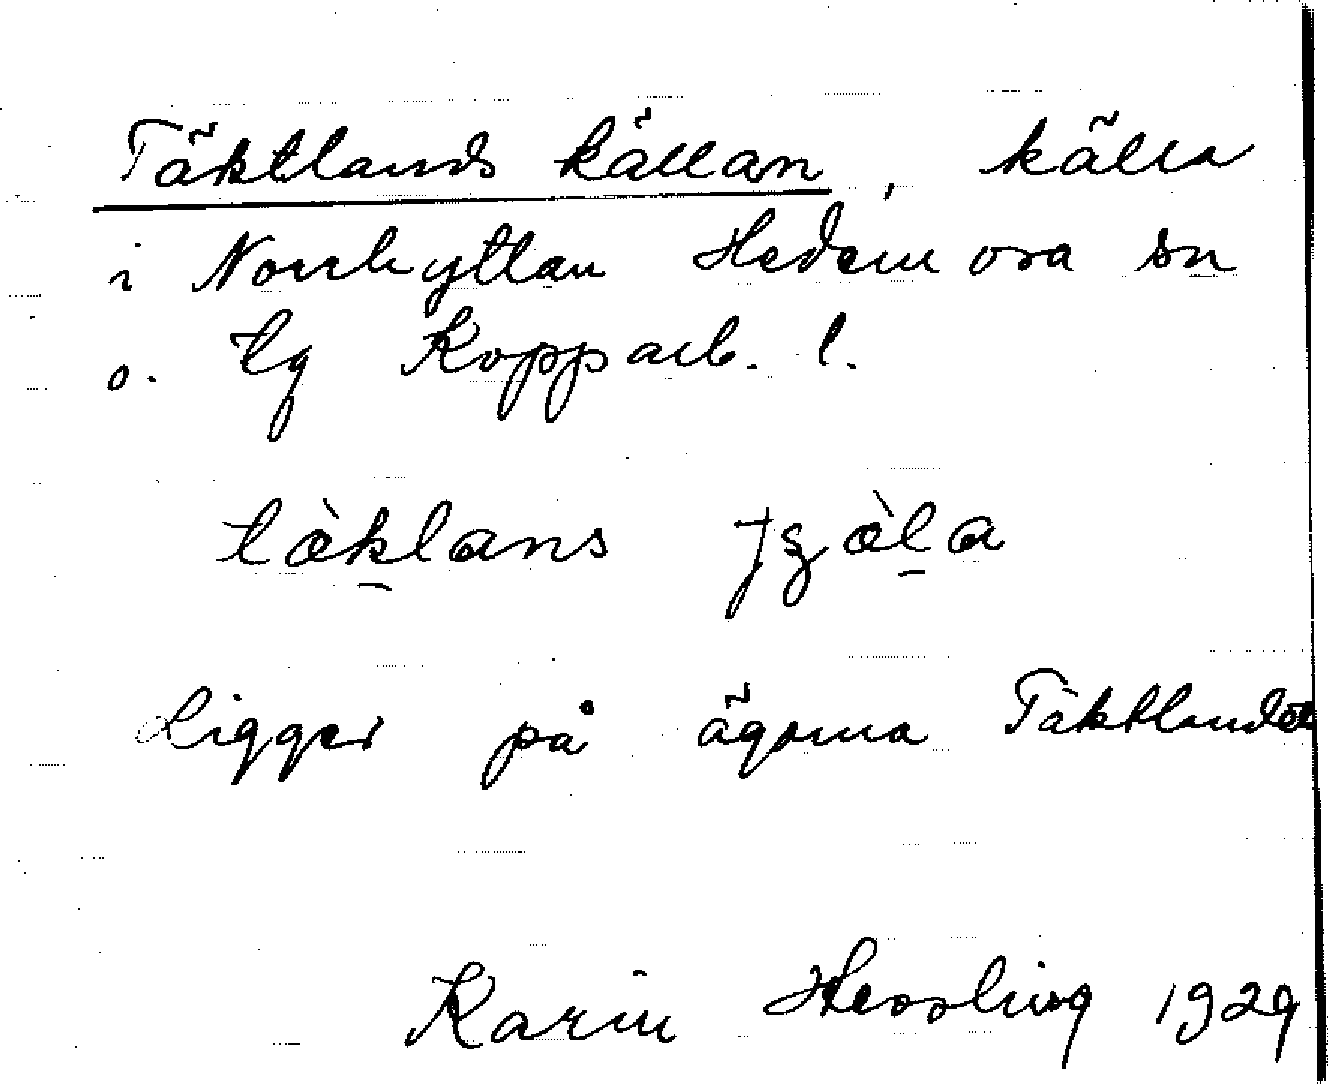 Täktlands källan, källa
i Norrhyttan Hedemora sn
o. tg Kopparb. l.
tæ̀k̠lans tʂæ̀l̠a
Ligger på ägorna Täktlandet
Karin Hessling 1929